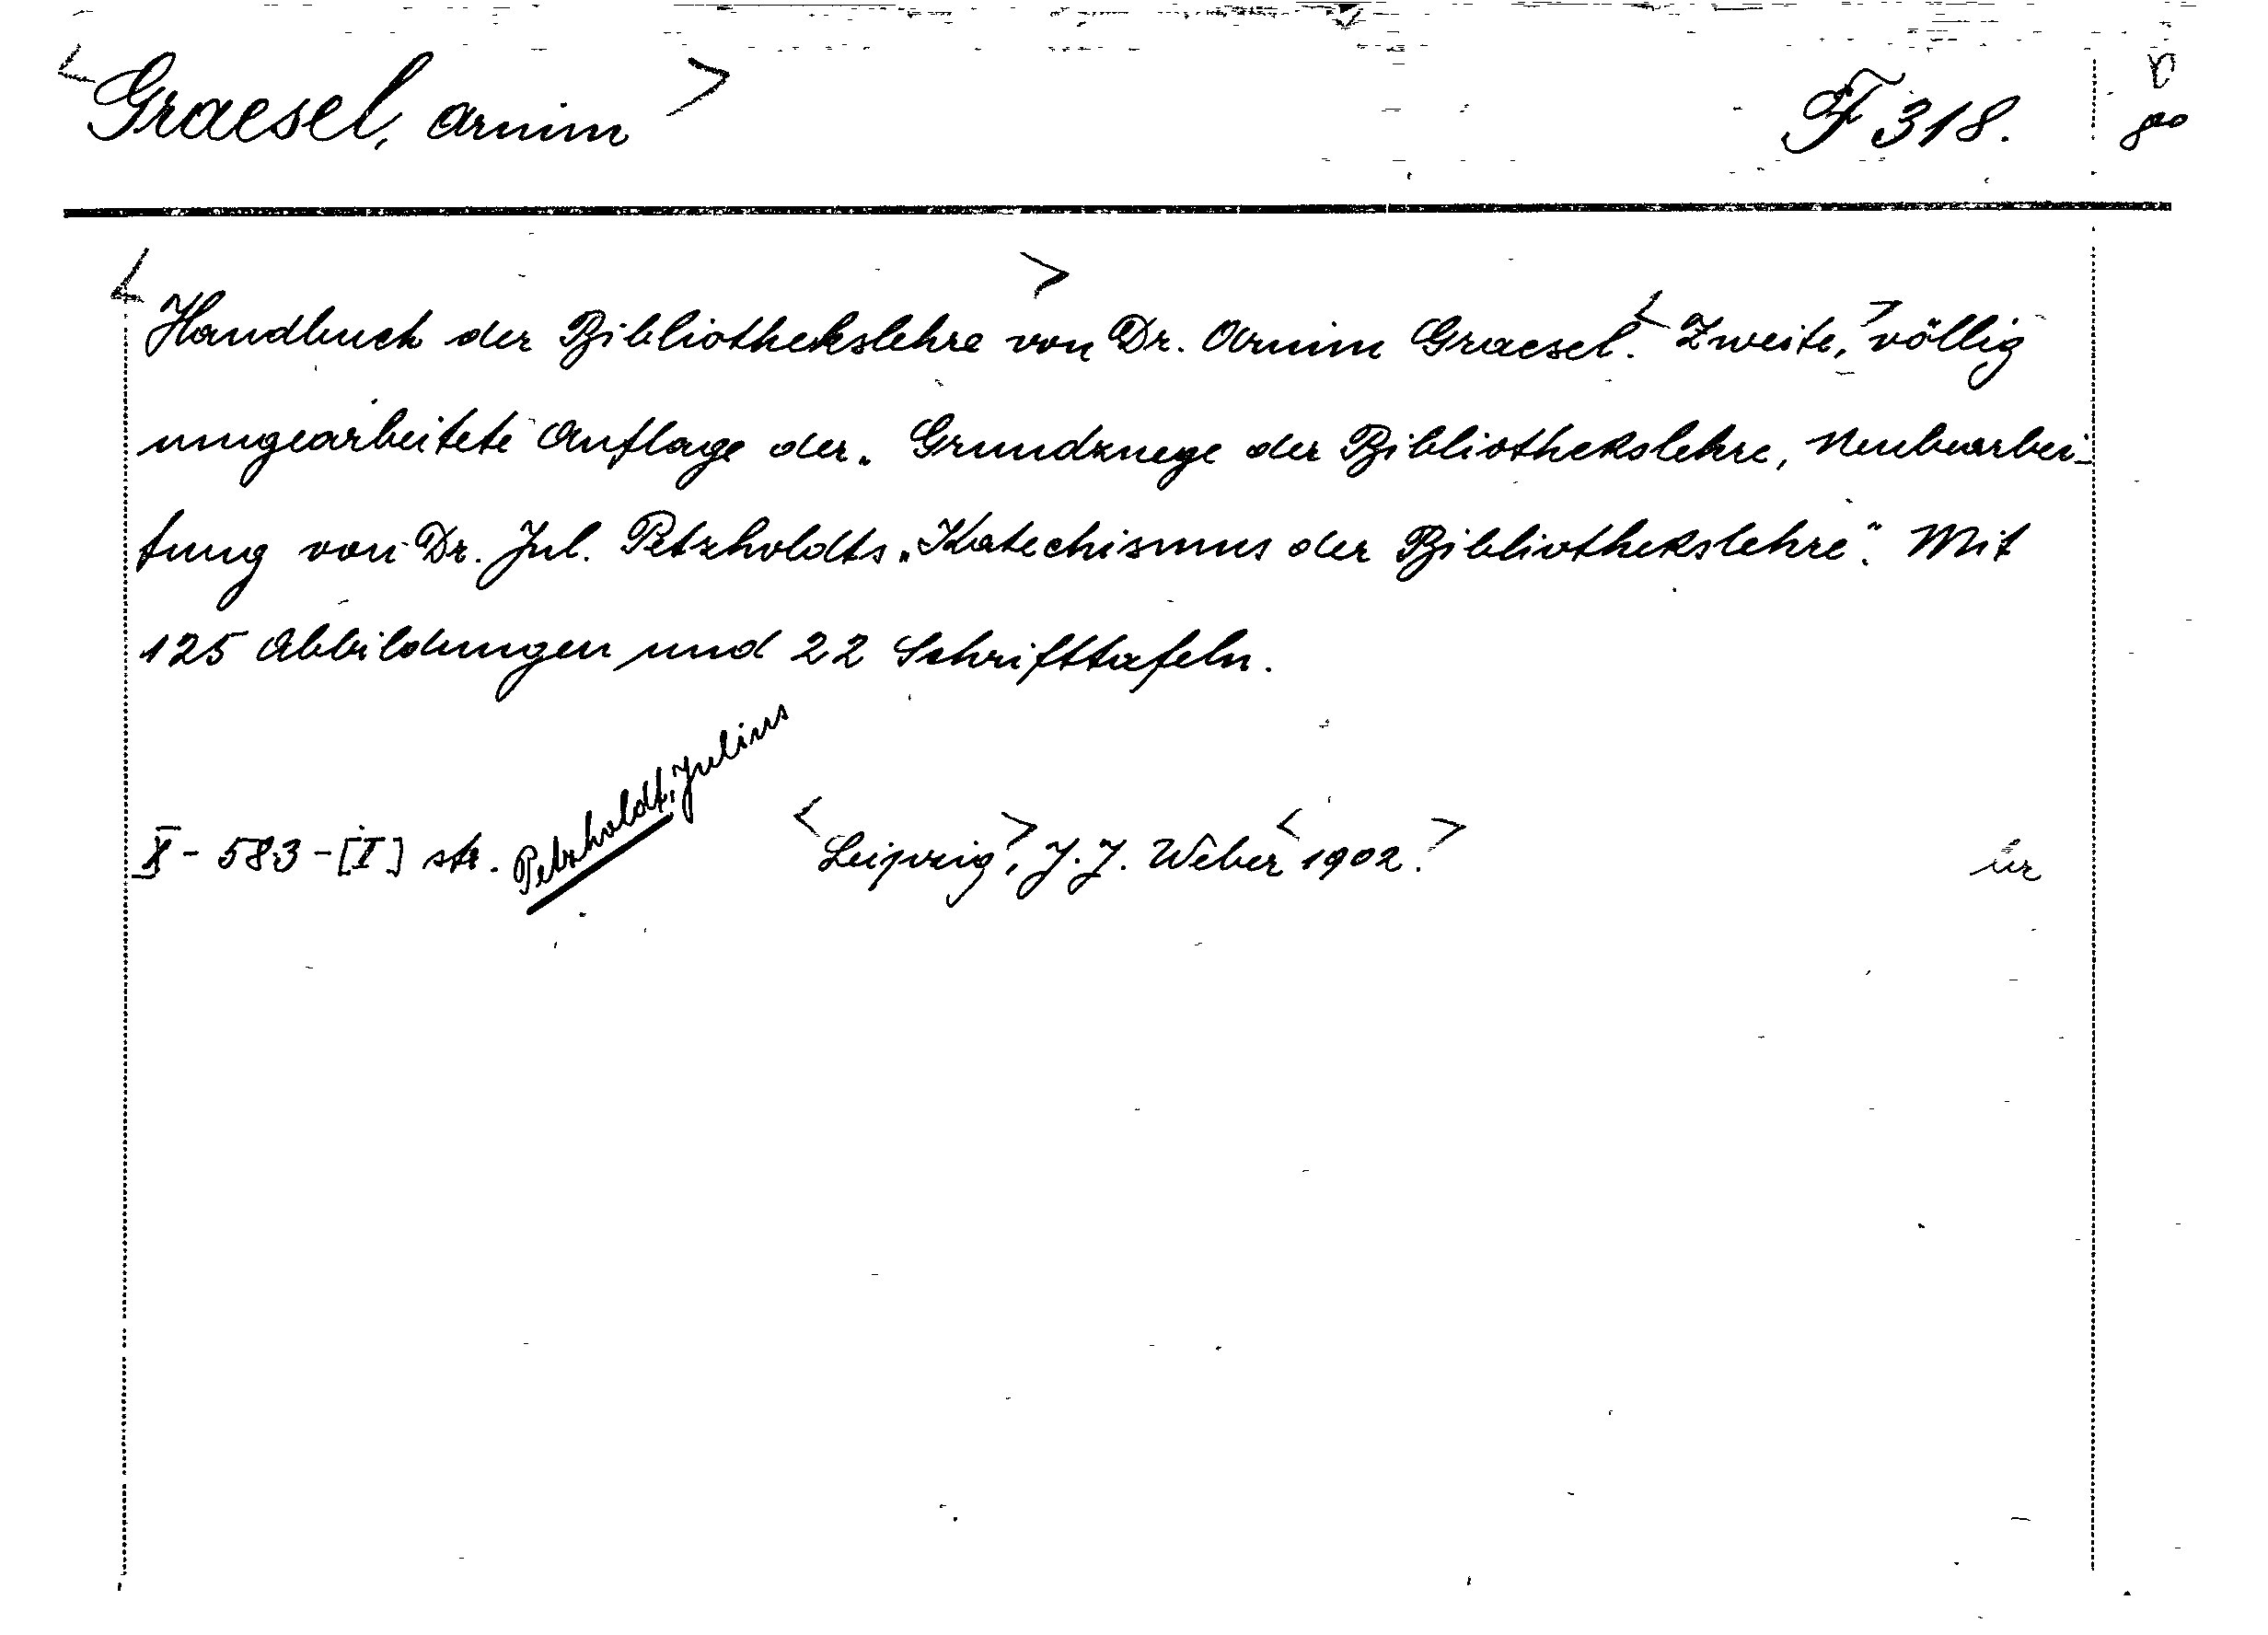 <Graesel, Armin> F 318.
<Handbuch der Bibliothekslehre> von Dr. Armin Graesel. <Zweite,> völlig
umgearbeitete Auflage der „Grundzuege der Bibliothekslehre, Neubearbei-
tung von Dr. Jul. Petzholdts „Katechismus der Bibliothekslehre". Mit
125 Abbildungen und 22 Schrifttafeln.
Petzholdt, Julius
X - 583 - [I] str. <Leipzig>, J. J. Weber <1902.>